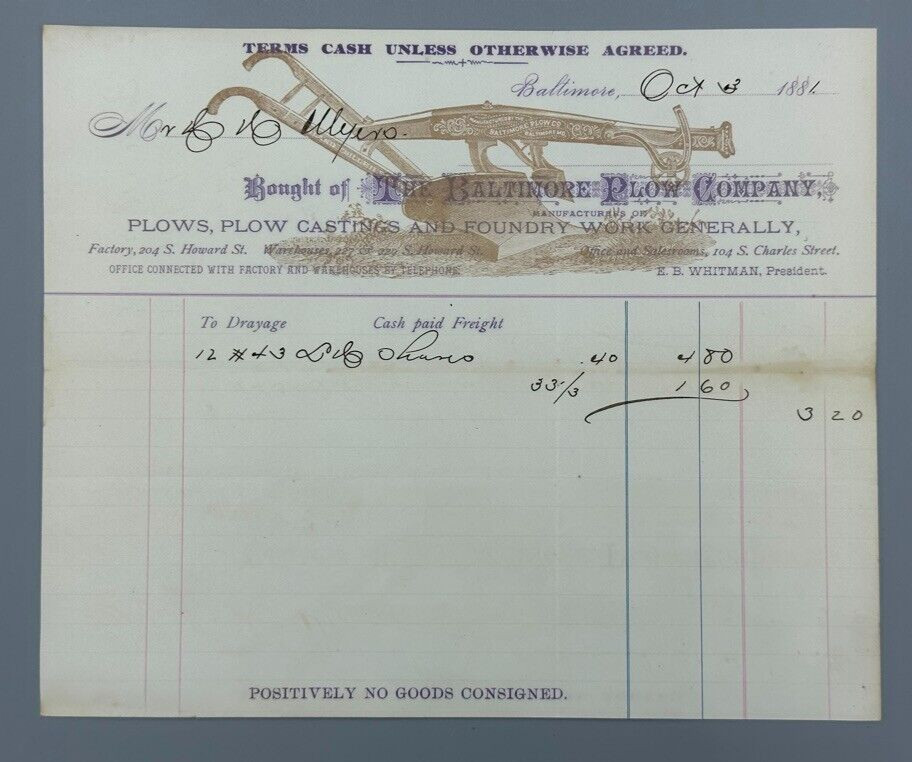 TERMS CASH UNLESS OTHERWISE AGREED.
Baltimore, Oct 3 1881.
Mr Myers.
MANUFACTURED BY THE
BALTIMORE PLOW CO.
BALTIMORE MD.
Bought of THE BALTIMORE PLOW COMPANY,
MANUFACTURERS OF
PLOWS, PLOW CASTINGS AND FOUNDRY WORK GENERALLY,
Factory, 204 S. Howard St. Warehouses, 227 & 229 S. Howard St. Office and Salesrooms, 104 S. Charles Street.
OFFICE CONNECTED WITH FACTORY AND WAREHOUSES BY TELEPHONE
E. B. WHITMAN, President.
To Drayage Cash paid Freight
12 #43 Shares .40 4 80
33 1/3 1 60
3 20
POSITIVELY NO GOODS CONSIGNED.